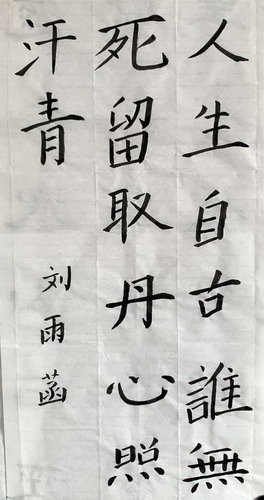 人生自古誰無
死留取丹心照
汗青
刘雨菡